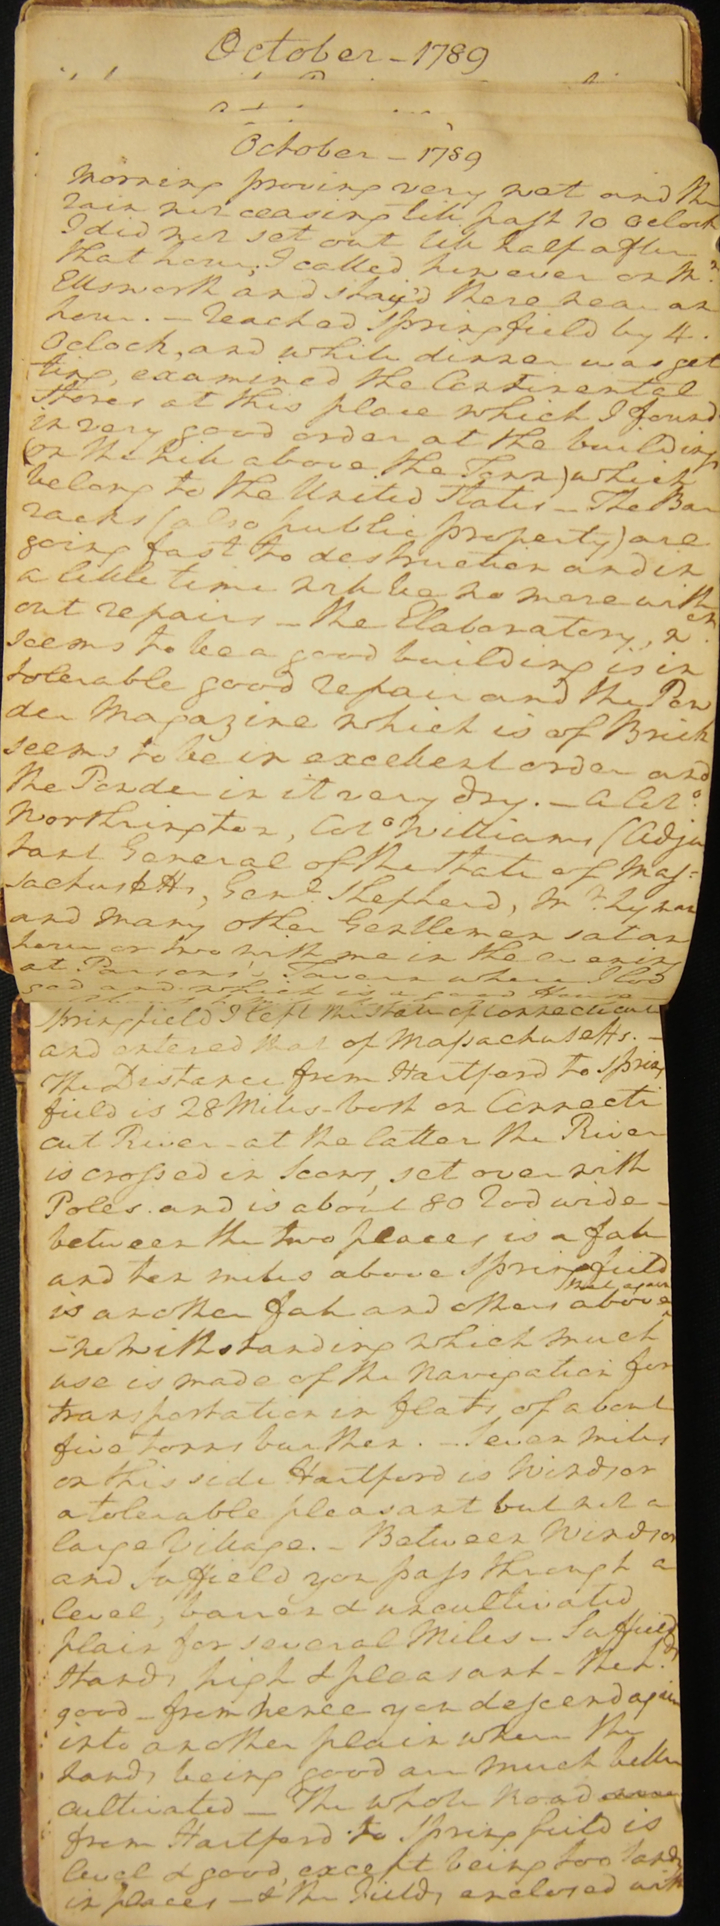 October - 1789
October - 1789
Morning proving very wet and the
rain not ceasing till past 10 Oclock
I did not set out till half after
that hour; I called however on Mr.
Ellsworth and stay'd there near an
hour. - reached Springfield by 4.
Oclock, and while dinner was get
ting, examined the Continental
Stores at this place which I found
in very good order at the buildings
(on the hill above the Town) which
belong to the United States - The Bar
racks (also public property) are
going fast to destruction and in
a little time will be no more with
out repairs - the Elaboratory, wch.
seems to be a good building is in
tolerable good repair and the Pow
der Magazine which is of Brick
seems to be in excellent order and
the Powder in it very dry. - A Colo.
Worthington, Colo Williams (Adju
tant General of the State of Mas=
sachusetts, Genl. Shepherd, Mr. Lyman
and many other Gentlemen sat an
hour or two with me in the evening
at Parsons's Tavern where I lod
ged and which is a good House -
Springfield I left the State of Connecticut
and entered that of Massachusetts. -
The Distance from Hartford to Spring
field is 28 Miles - both on Connecti
cut River - at the latter the River
is crossed in Scows, set over with
Poles and is about 80 rod wide -
between the two places is a fall
and ten miles above Springfield
is another fall and others above
that again
- notwithstanding which much
use is made of the Navigation for
transportation in flats of about
five tonns burthen. - Seven miles
on this side Hartford is Windsor
a tolerable pleasant but not a
large Village. - Between Windsor
and Suffield you pass through a
level, barren & uncultivated
plain for several Miles - Suffield
stands high & pleasant - the Lds.
good - from hence you descend again
into another plain where the
lands being good are much better
cultivated - The whole Road
from Hartford to Springfield is
level & good, except being too Sandy
in places - & the Fields enclosed with